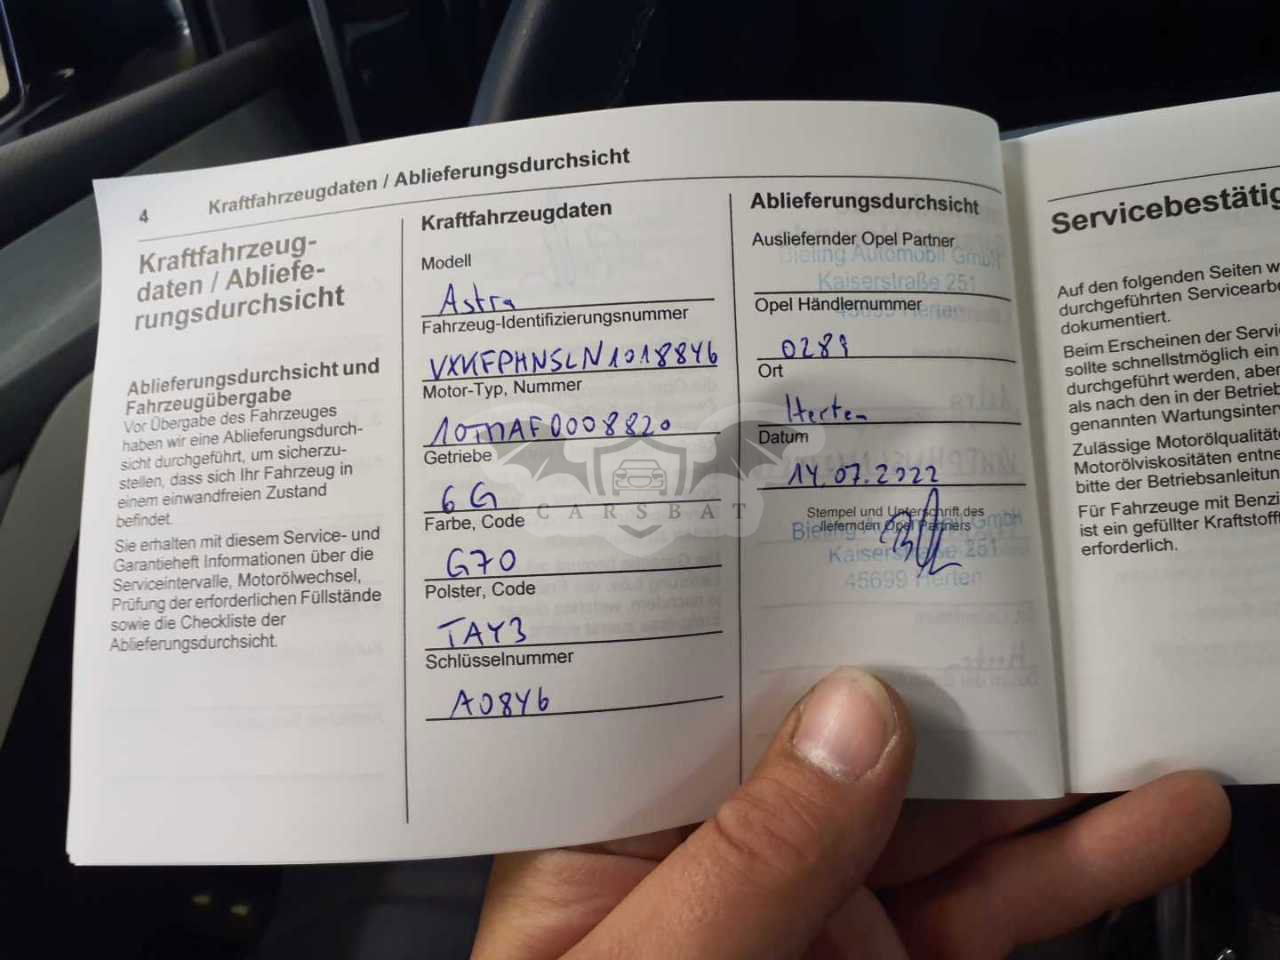 4
Kraftfahrzeugdaten / Ablieferungsdurchsicht
Kraftfahrzeug-
daten / Abliefe-
rungsdurchsicht
Ablieferungsdurchsicht und
Fahrzeugübergabe
Vor Übergabe des Fahrzeuges
haben wir eine Ablieferungsdurch-
sicht durchgeführt, um sicherzu-
stellen, dass sich Ihr Fahrzeug in
einem einwandfreien Zustand
befindet.
Sie erhalten mit diesem Service- und
Garantieheft Informationen über die
Serviceintervalle, Motorölwechsel,
Prüfung der erforderlichen Füllstände
sowie die Checkliste der
Ablieferungsdurchsicht.
Kraftfahrzeugdaten
Modell
Astra
Fahrzeug-Identifizierungsnummer
VXKFPHNSLN1018846
Motor-Typ, Nummer
Getriebe
6G
Farbe, Code
G70
Polster, Code
TAY3
Schlüsselnummer
A0846
Ablieferungsdurchsicht
Ausliefernder Opel Partner
Bieling Automobil GmbH
Kaiserstraße 251
45699 Herten
Opel Händlernummer
Ort
Herten
Datum
14.07.2022
Stempel und Unterschrift des
liefernden Opel Partners
Bieling GmbH
Kaiserstraße 251
45699 Herten
CARSBAT
Servicebestätig
Auf den folgenden Seiten w
durchgeführten Servicearbe
dokumentiert.
Beim Erscheinen der Servi
sollte schnellstmöglich ein
durchgeführt werden, aber
als nach den in der Betrieb
genannten Wartungsinter
Zulässige Motorölqualitäte
Motorölviskositäten entne
bitte der Betriebsanleitun
Für Fahrzeuge mit Benzi
ist ein gefüllter Kraftstoff
erforderlich.